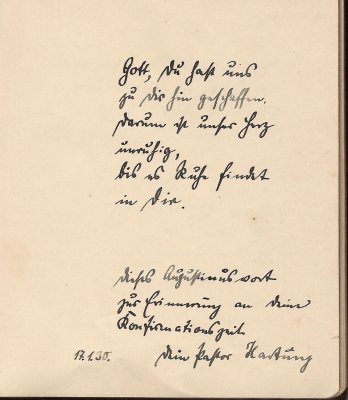 Gott, Du hast uns
zu Dir hin geschaffen.
Darum ist unser Herz
unruhig,
bis es Ruhe findet
in Dir.
Dieses Augustinuswort
zur Erinnerung an Deine
Konfirmationszeit.
17.1.30. Dein Pastor Hartung